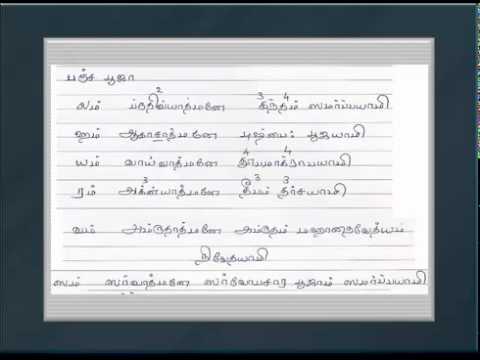 பஞ்ச பூஜா
லம் ப்ருதிவ்யாத்மனே கந்தம் ஸமர்ப்பயாமி
ஹம் ஆகாசாத்மனே புஷ்பை: பூஜயாமி
யம் வாய்வாத்மனே தூபமாக்ராபயாமி
ரம் அக்ன்யாத்மனே தீபம் தர்சயாமி
வம் அம்ருதாத்மனே அம்ருதம் மஹாநைவேத்யம்
நிவேதயாமி
ஸம் ஸர்வாத்மனே ஸர்வோபசார பூஜாம் ஸமர்ப்பயாமி